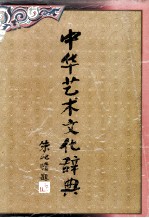 中华艺术文化辞典
朱屺瞻题